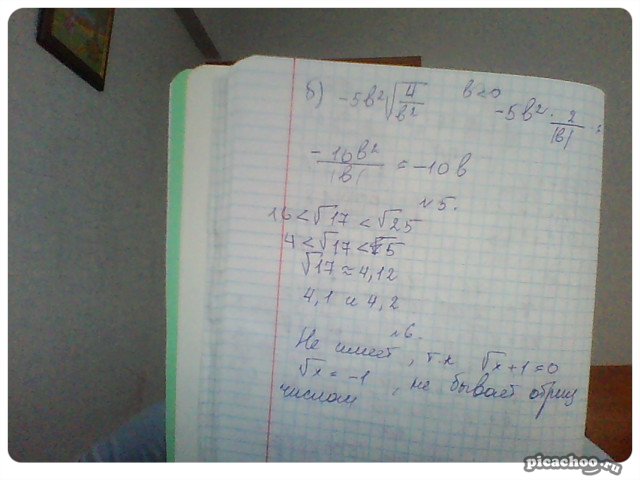 б) -5b²√(4/b²) b<0 -5b² · 2/|b| =
-10b²/|b| = -10b
№5.
16 < √17 < √25
4 < √17 < √5
√17 ≈ 4,12
4,1 и 4,2
№6.
Не имеет, т.к √x+1=0
√x = -1, не бывает отриц
числом
picachoo.ru